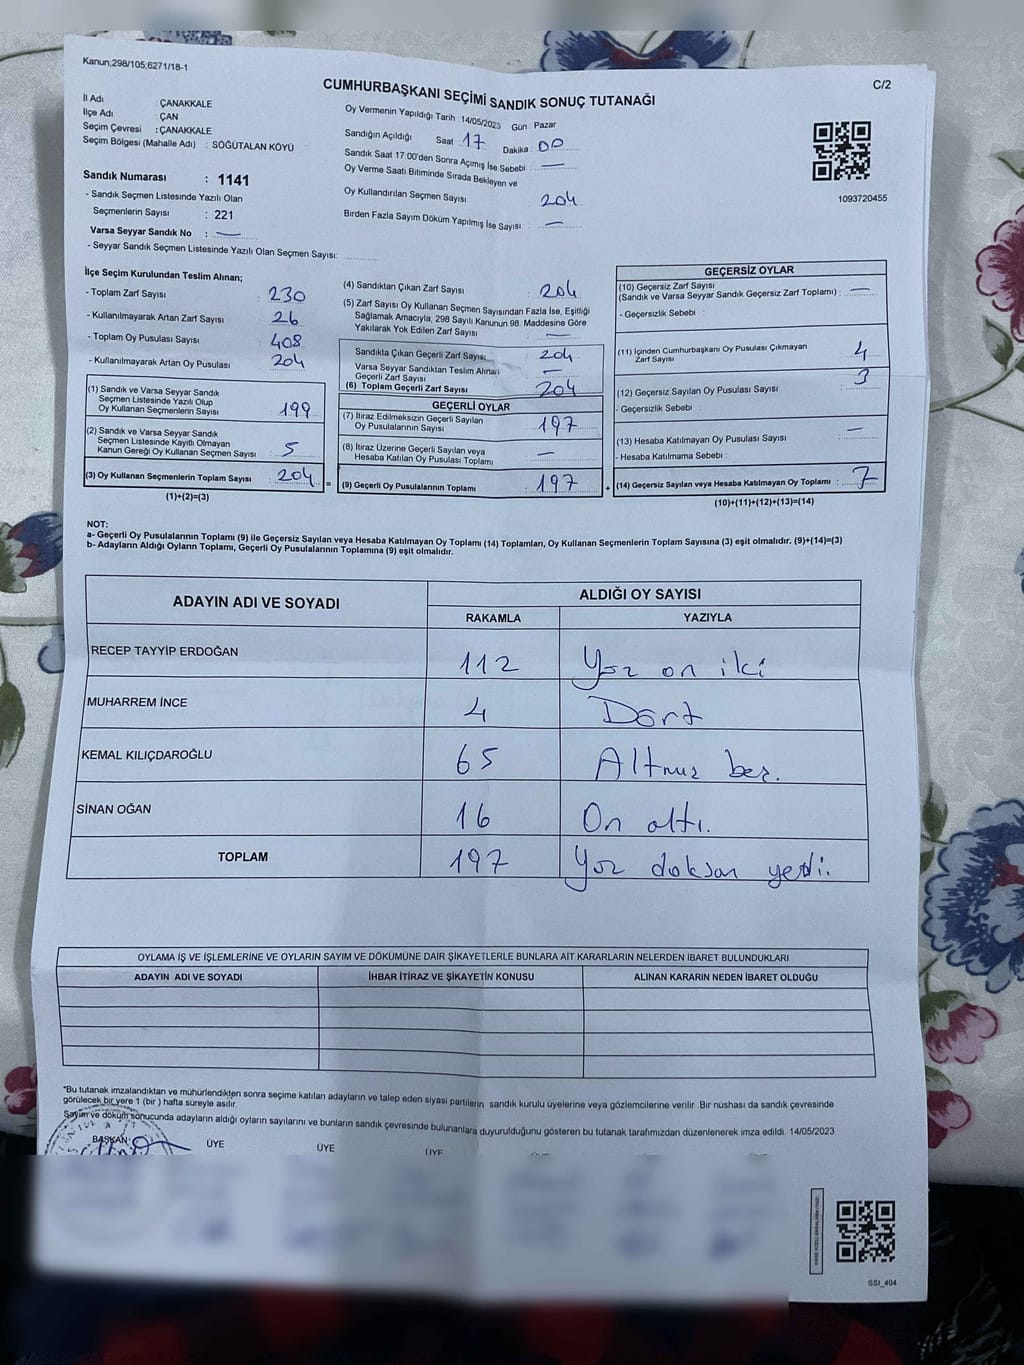 Kanun;298/105;6271/18-1
CUMHURBAŞKANI SEÇİMİ SANDIK SONUÇ TUTANAĞI
C/2
İl Adı ÇANAKKALE
İlçe Adı ÇAN
Seçim Çevresi : ÇANAKKALE
Seçim Bölgesi (Mahalle Adı) : SÖĞÜTALAN KÖYÜ
Sandık Numarası : 1141
- Sandık Seçmen Listesinde Yazılı Olan
Seçmenlerin Sayısı : 221
Varsa Seyyar Sandık No : —
- Seyyar Sandık Seçmen Listesinde Yazılı Olan Seçmen Sayısı:
Oy Vermenin Yapıldığı Tarih : 14/05/2023 Gün : Pazar
Sandığın Açıldığı Saat : 17 Dakika : 00
Sandık Saat 17:00'den Sonra Açımış İse Sebebi : —
Oy Verme Saati Bitiminde Sırada Bekleyen ve
Oy Kullandırılan Seçmen Sayısı : 204
Birden Fazla Sayım Döküm Yapılmış İse Sayısı : —
1093720455
İlçe Seçim Kurulundan Teslim Alınan;
- Toplam Zarf Sayısı : 230
- Kullanılmayarak Artan Zarf Sayısı : 26
- Toplam Oy Pusulası Sayısı : 408
- Kullanılmayarak Artan Oy Pusulası : 204
(1) Sandık ve Varsa Seyyar Sandık
Seçmen Listesinde Yazılı Olup
Oy Kullanan Seçmenlerin Sayısı : 199
(2) Sandık ve Varsa Seyyar Sandık
Seçmen Listesinde Kayıtlı Olmayan
Kanun Gereği Oy Kullanan Seçmen Sayısı : 5
(3) Oy Kullanan Seçmenlerin Toplam Sayısı : 204
(1)+(2)=(3)
(4) Sandıktan Çıkan Zarf Sayısı : 204
(5) Zarf Sayısı Oy Kullanan Seçmen Sayısından Fazla İse, Eşitliği
Sağlamak Amacıyla; 298 Sayılı Kanunun 98. Maddesine Göre
Yakılarak Yok Edilen Zarf Sayısı : —
Sandıkta Çıkan Geçerli Zarf Sayısı : 204
Varsa Seyyar Sandıktan Teslim Alınan
Geçerli Zarf Sayısı : —
(6) Toplam Geçerli Zarf Sayısı : 204
GEÇERLİ OYLAR
(7) İtiraz Edilmeksizin Geçerli Sayılan
Oy Pusulalarının Sayısı : 197
(8) İtiraz Üzerine Geçerli Sayılan veya
Hesaba Katılan Oy Pusulası Toplamı : —
= (9) Geçerli Oy Pusulalarının Toplamı : 197
GEÇERSİZ OYLAR
(10) Geçersiz Zarf Sayısı
(Sandık ve Varsa Seyyar Sandık Geçersiz Zarf Toplamı) : —
- Geçersizlik Sebebi :
(11) İçinden Cumhurbaşkanı Oy Pusulası Çıkmayan
Zarf Sayısı : 4
(12) Geçersiz Sayılan Oy Pusulası Sayısı : 3
- Geçersizlik Sebebi :
(13) Hesaba Katılmayan Oy Pusulası Sayısı : —
- Hesaba Katılmama Sebebi :
+ (14) Geçersiz Sayılan veya Hesaba Katılmayan Oy Toplamı : 7
(10)+(11)+(12)+(13)=(14)
NOT:
a- Geçerli Oy Pusulalarının Toplamı (9) ile Geçersiz Sayılan veya Hesaba Katılmayan Oy Toplamı (14) Toplamları, Oy Kullanan Seçmenlerin Toplam Sayısına (3) eşit olmalıdır. (9)+(14)=(3)
b- Adayların Aldığı Oyların Toplamı, Geçerli Oy Pusulalarının Toplamına (9) eşit olmalıdır.
ADAYIN ADI VE SOYADI ALDIĞI OY SAYISI
RAKAMLA YAZIYLA
RECEP TAYYİP ERDOĞAN 112 Yüz on iki
MUHARREM İNCE 4 Dört
KEMAL KILIÇDAROĞLU 65 Altmış beş.
SİNAN OĞAN 16 On altı.
TOPLAM 197 Yüz doksan yedi.
OYLAMA İŞ VE İŞLEMLERİNE VE OYLARIN SAYIM VE DÖKÜMÜNE DAİR ŞİKAYETLERLE BUNLARA AİT KARARLARIN NELERDEN İBARET BULUNDUKLARI
ADAYIN ADI VE SOYADI İHBAR İTİRAZ VE ŞİKAYETİN KONUSU ALINAN KARARIN NEDEN İBARET OLDUĞU
*Bu tutanak imzalandıktan ve mühürlendikten sonra seçime katılan adayların ve talep eden siyasi partilerin sandık kurulu üyelerine veya gözlemcilerine verilir. Bir nüshası da sandık çevresinde
görülecek bir yere 1 (bir) hafta süreyle asılır.
Sayım ve döküm sonucunda adayların aldığı oyların sayılarını ve bunların sandık çevresinde bulunanlara duyurulduğunu gösteren bu tutanak tarafımızdan düzenlenerek imza edildi. 14/05/2023
BAŞKAN ÜYE ÜYE ÜYE
SSI_404